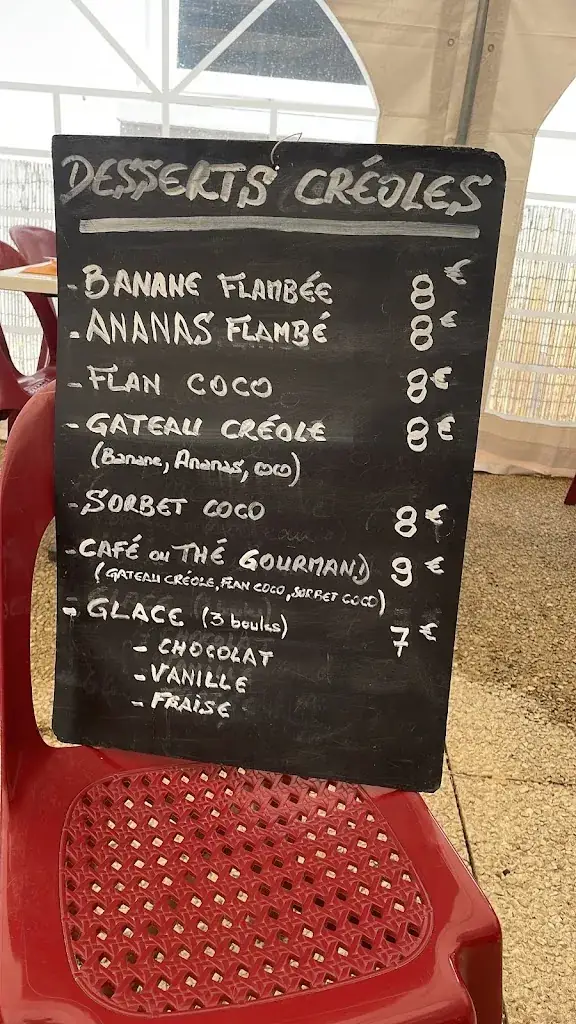 DESSERTS CRÉOLES
- BANANE FLAMBÉE 8€
- ANANAS FLAMBÉ 8€
- FLAN COCO 8€
- GATEAU CRÉOLE 8€
(Banane, Ananas, coco)
- SORBET COCO 8€
- CAFÉ ou THÉ GOURMAND 9€
(GATEAU CRÉOLE, FLAN COCO, SORBET COCO)
- GLACE (3 boules) 7€
- CHOCOLAT
- VANILLE
- FRAISE